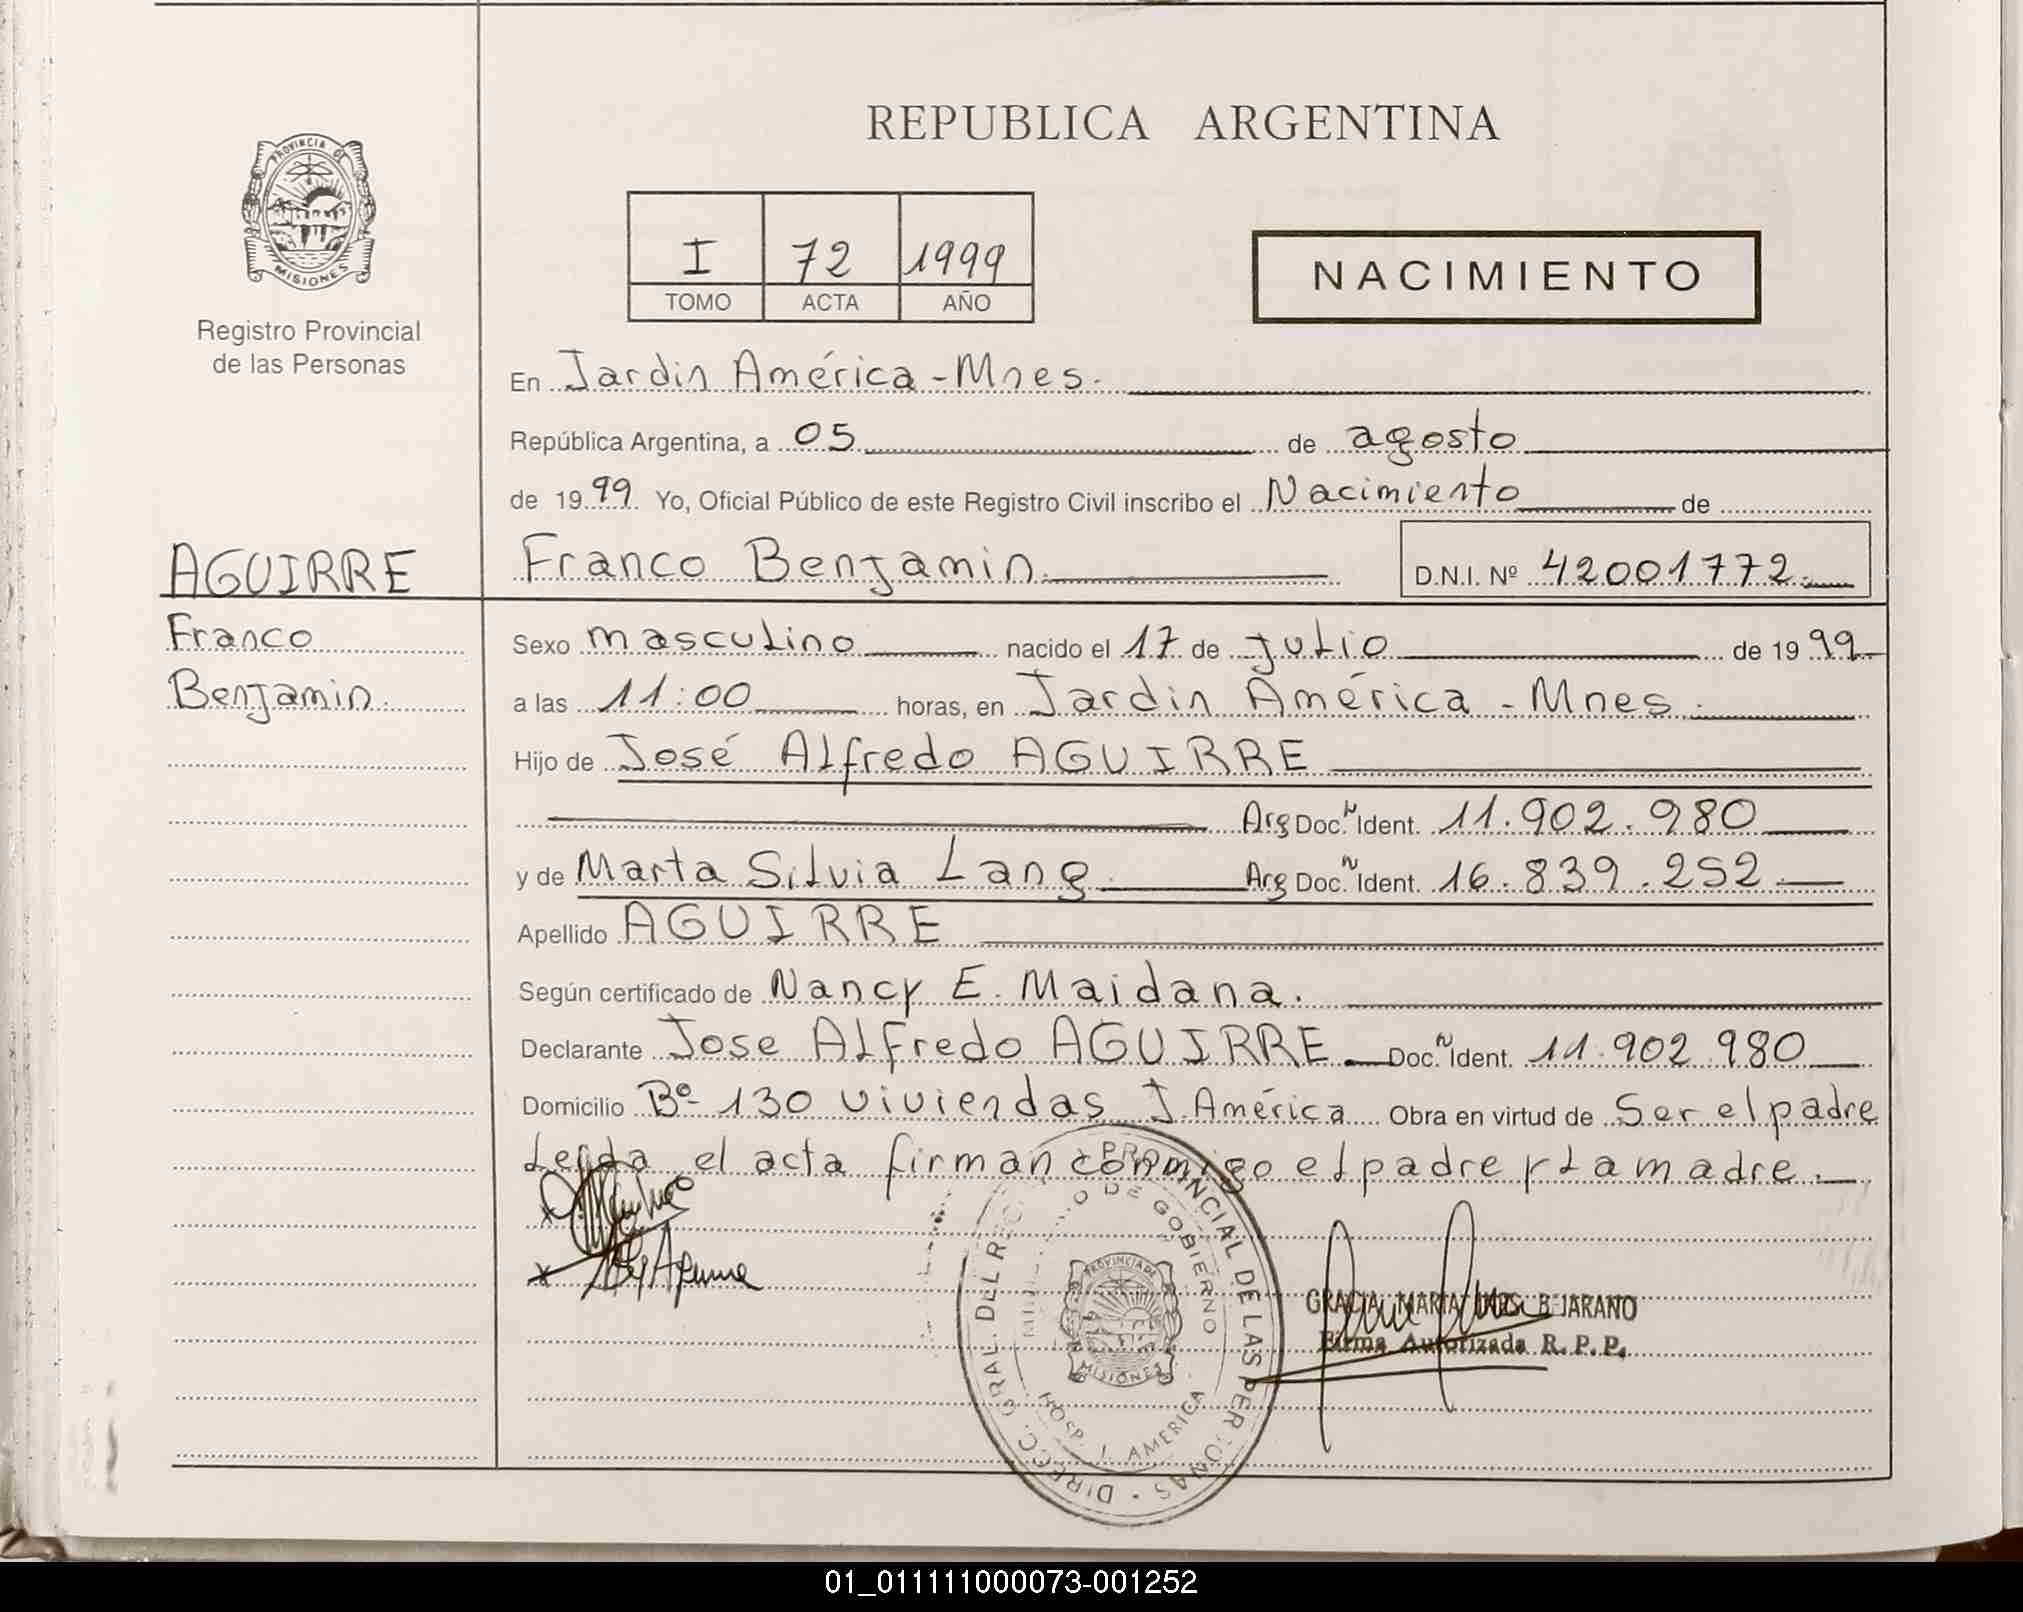 REPUBLICA ARGENTINA
PROVINCIA DE
MISIONES
Registro Provincial
de las Personas
I 72 1999
TOMO ACTA AÑO
NACIMIENTO
En Jardin América - Mnes.
República Argentina, a 05 de agosto
de 1999 Yo, Oficial Público de este Registro Civil inscribo el Nacimiento de
AGUIRRE
Franco Benjamin. D.N.I. Nº 42001772.
Franco
Benjamin.
Sexo masculino nacido el 17 de julio de 1999
a las 11:00 horas, en Jardin América - Mnes.
Hijo de José Alfredo AGUIRRE
Arg Doc. N Ident. 11.902.980
y de Marta Silvia Lang. Arg Doc. N Ident. 16.839.252.
Apellido AGUIRRE
Según certificado de Nancy E. Maidana.
Declarante Jose Alfredo AGUIRRE Doc. N Ident. 11.902.980
Domicilio Bº 130 viviendas J. América Obra en virtud de Ser el padre
Leida el acta firman conmigo el padre y la madre.
DIRECC. GRAL. DEL REG. PROVINCIAL DE LAS PERSONAS
MINISTERIO DE GOBIERNO
PROVINCIA DE
MISIONES
HOSP. J. AMERICA
GRACIA MARIA INES BEJARANO
Firma Autorizada R. P. P.
01_011111000073-001252